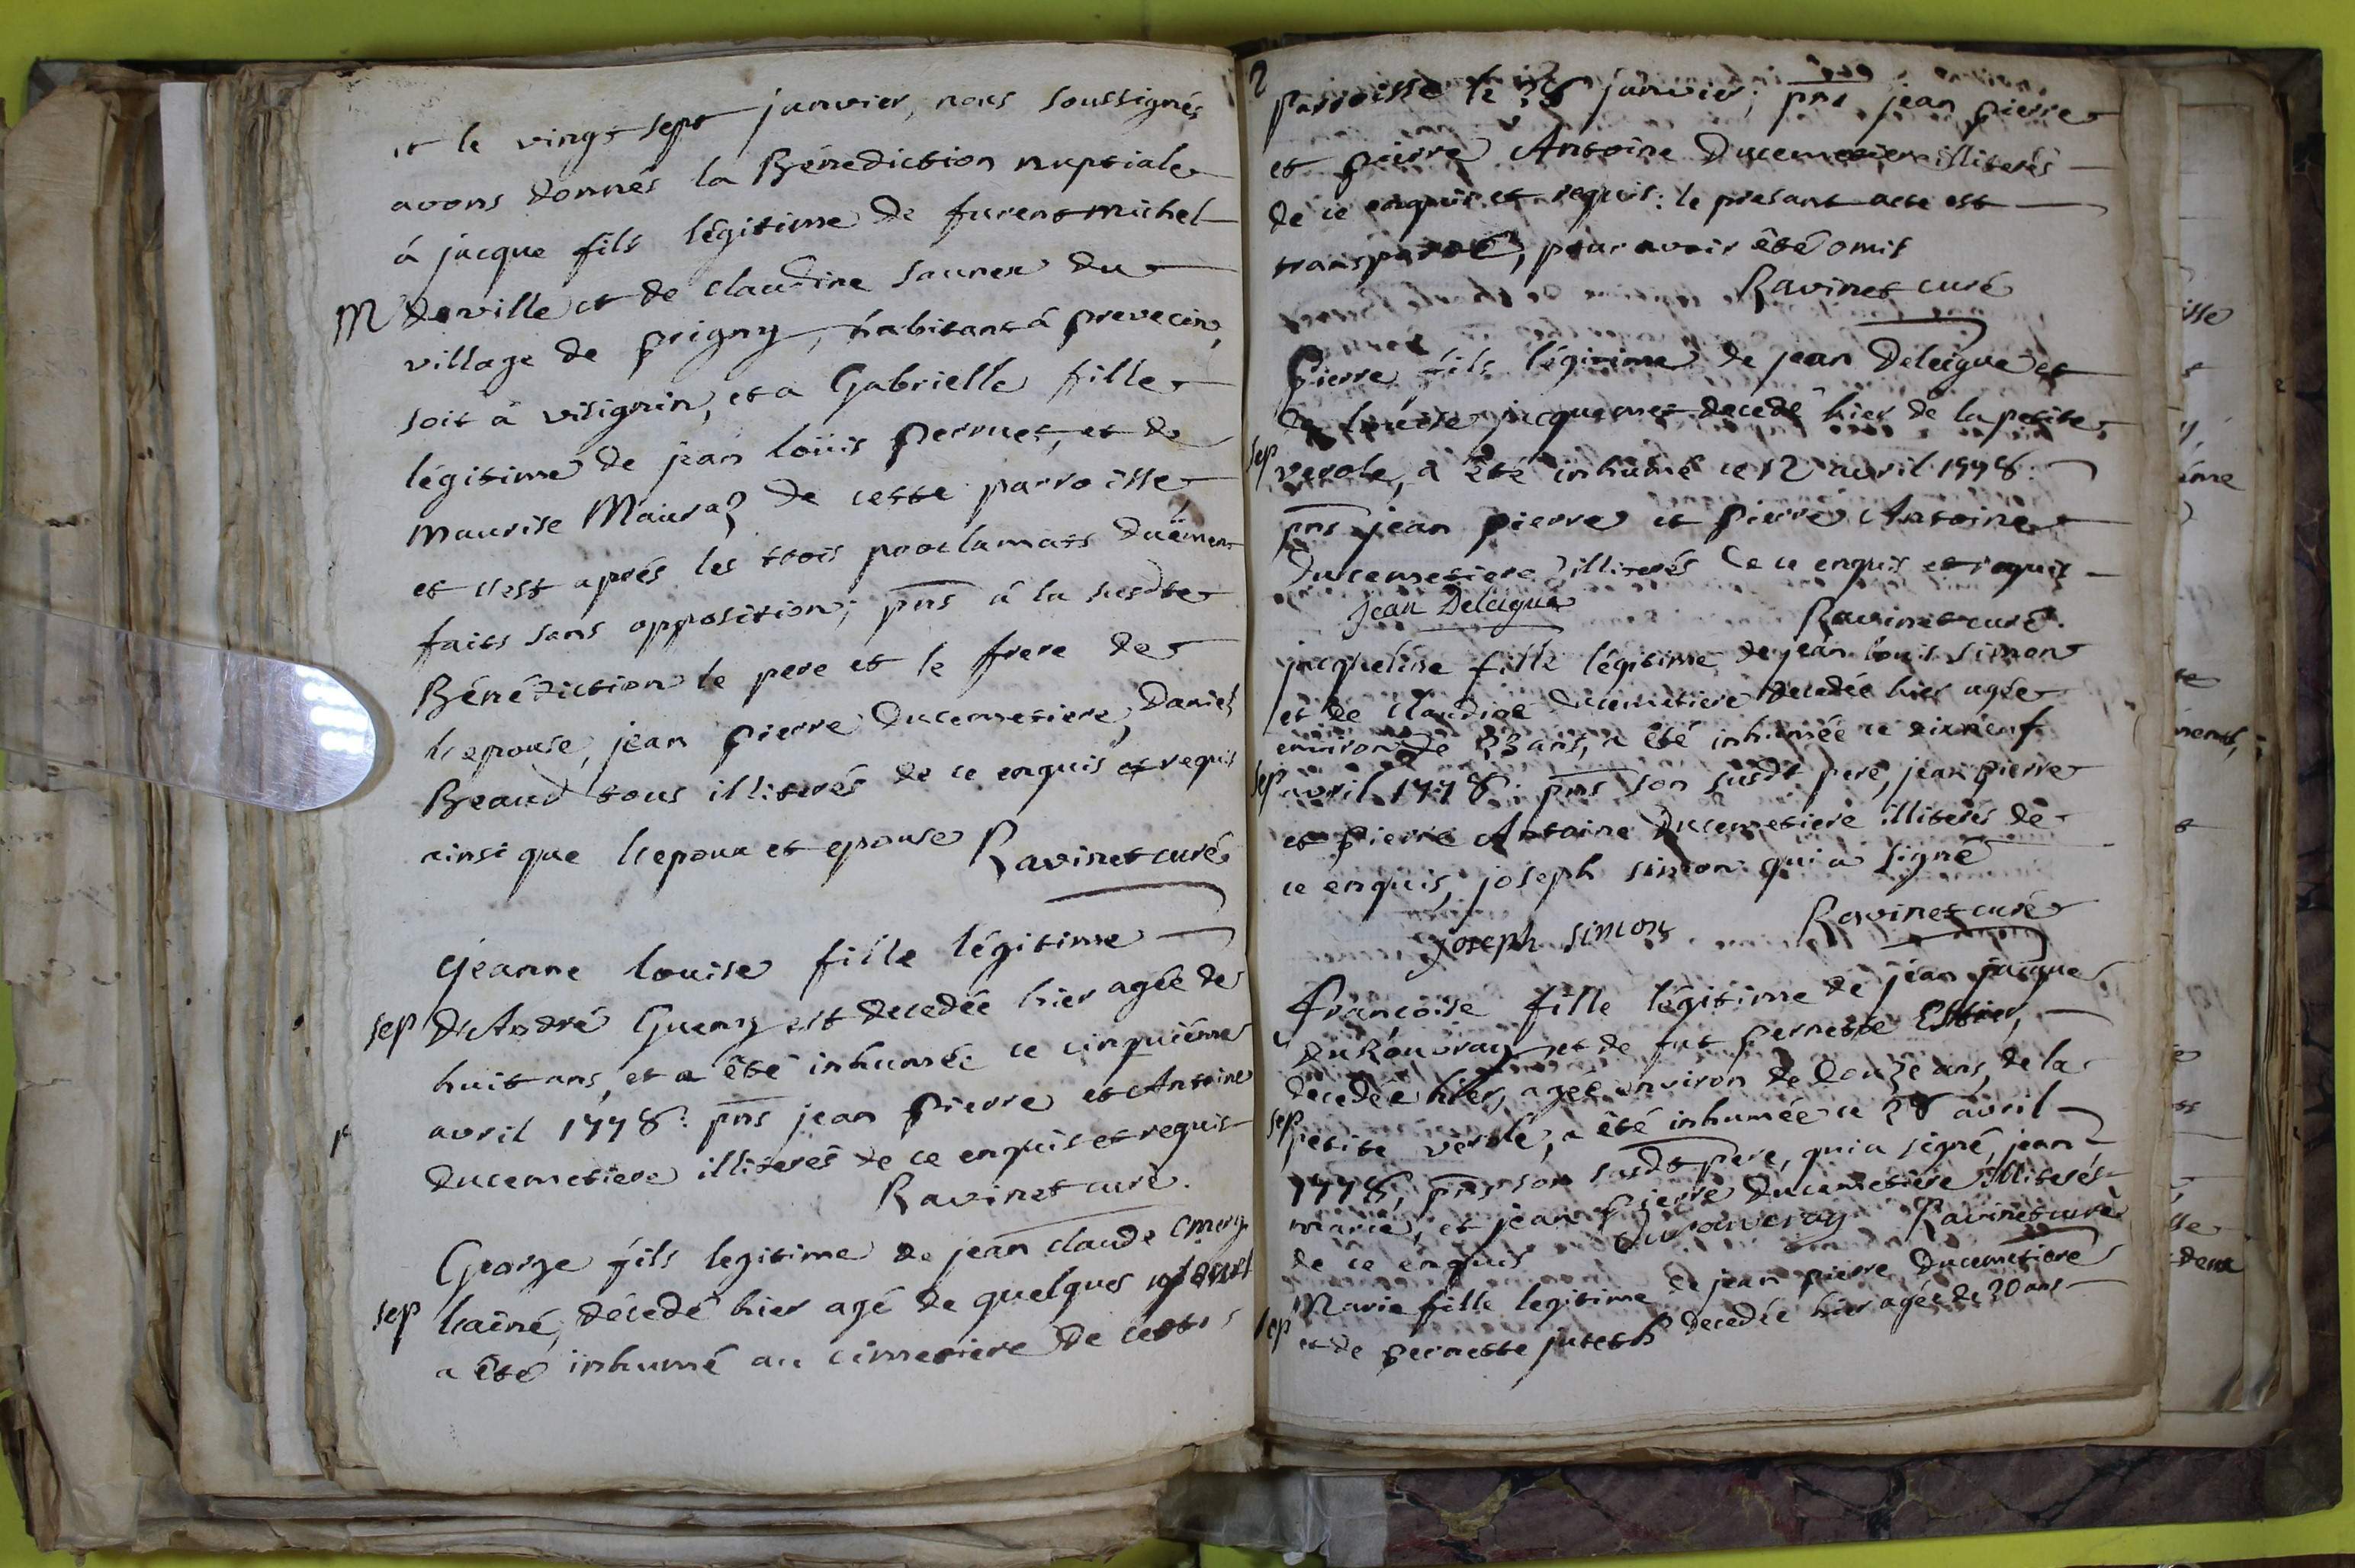 et le vingt sept janvier, nous soussignés
avons donnés la Bénediction nuptiale
à jacque fils légitime de furent michel
M deville et de claudine saunex du
village de prigny, habitant à prevecin,
soit à visignin, et a Gabrielle fille
légitime de jean loüis perruet, et de
maurise Mauraz de cette parroisse
et c'est aprés les trois proclamats duëment
faits sans opposition; pns à la susdte
Bénédiction le pere et le frere de
l'epouse, jean pierre Ducemetiere, Daniel
Beaud tous illiterés de ce enquis et requis
ainsi que l'epoux et epouse Ravinet curé
jeanne louise fille légitime
sep D'André Guemy est decedée hier agée de
huit ans, et a été inhumée ce cinquiéme
avril 1778: pns jean pierre et Antoine
Ducemetiere illiterés de ce enquis et requis
Ravinet curé.
George fils legitime de jean claude Emery
sep l'aîné, décedé hier agé de quelques
a été inhumé au cimetiere de cette
2
parroisse le 28 janvier; pns jean pierre
et pierre Antoine Ducemetiere illiterés
de ce enquis et requis: le presant acte est
transporté, pour avoir été omis
Ravinet curé
Pierre fils légitime de jean Delaigue et
de loüise jacquemet decedé hier de la petite
sep verole, a été inhumé ce 12 avril 1778.
pns jean pierre et pierre Antoine
Ducemetiere illiterés de ce enquis et requis
jean Delaigue Ravinet curé.
jacqueline fille légitime de jean loüis simon
et de Claudine Ducemetiere decedée hier agée
environ de 23 ans, a été inhumée ce dixneuf
sep avril 1778: pns son susdt pere, jean pierre
et pierre Antoine Ducemetiere illiterés de
ce enquis, joseph simon qui a signé
joseph simon Ravinet curé
françoise fille légitime de jean jacque
DuRouvray et de fut pernette
decedée hier, agée environ de douze ans, de la
sep petite verole, a été inhumée ce 28 avril
1778, pns son susdt pere, qui a signé, jean
marie, et jean pierre Ducemetiere illiterés
de ce enquis Durouveray Ravinet curé
Marie fille legitime de jean pierre Ducemetiere
sep et de pernette decedée hier agée de 20 ans